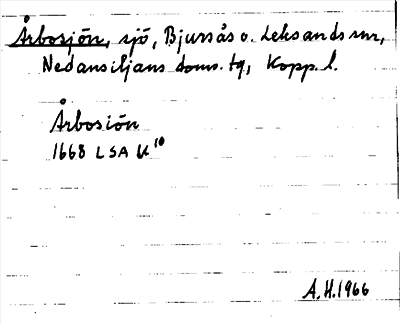 Årbosjön, sjö, Bjursås o. Leksands snr,
Nedansiljans doms. tg, Kopp. l.
Årbosiön
1668 LSA K10
A.H. 1966